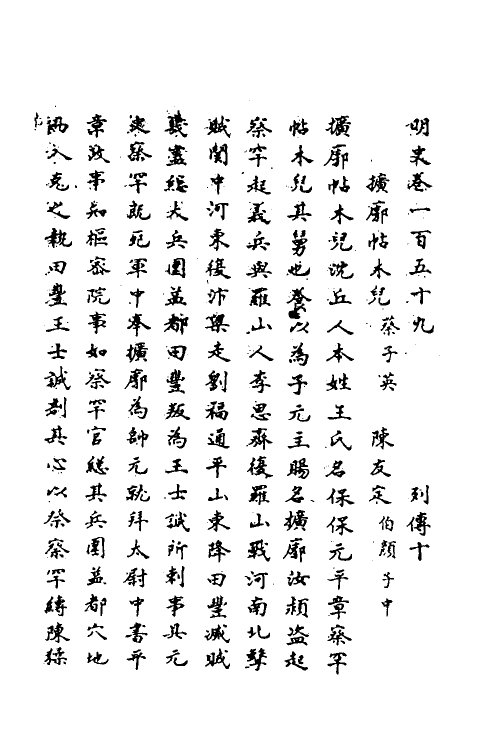 明史卷一百五十九　列傳十
擴廓帖木兒蔡子英　陳友定伯顏子中
擴廓帖木兒沈丘人本姓王氏名保保元平章察罕
帖木兒其舅也養以為子元主賜名擴廓汝潁盗起
察罕起義兵與羅山人李思齊復羅山戰河南北擊
賊關中河東復汴梁走劉福通平山東降田豐滅賊
幾盡總大兵圍益都田豐叛為王士誠所刺事具元
史察罕既死軍中奉擴廓為帥元就拜太尉中書平
章政事知樞密院事如察罕官總其兵圍益都穴地
而入克之執田豐王士誠剖其心以祭察罕縛陳猱